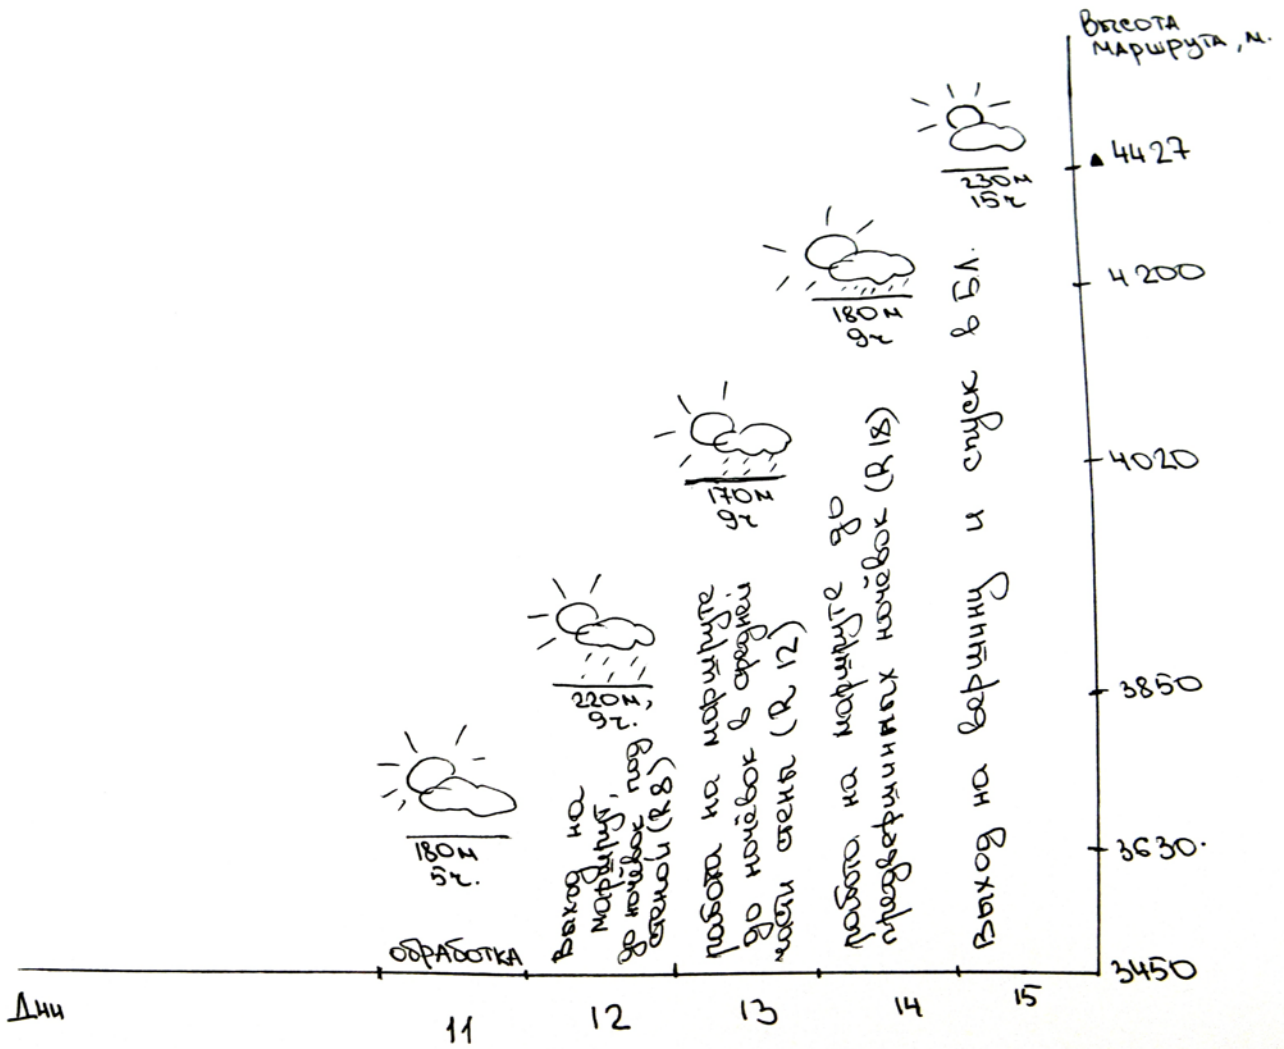 Высота
маршрута, м.
4427
230м
15ч
4200
180м
9ч
4020
170м
9ч
3850
220м,
9ч.
3630.
180м
5ч.
3450
обработка
Выход на
маршрут,
до ночёвок под
стеной (R8)
работа на маршруте
до ночёвок в средней
части стены (R 12)
работа на маршруте до
предвершинных ночёвок (R 18)
Выход на вершину и спуск в БЛ.
Дни
11
12
13
14
15